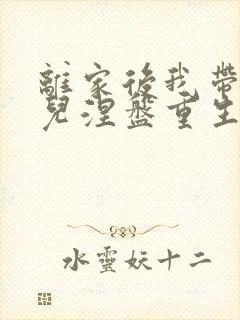 離家後我帶
兒涅盤重生
水靈妖十二